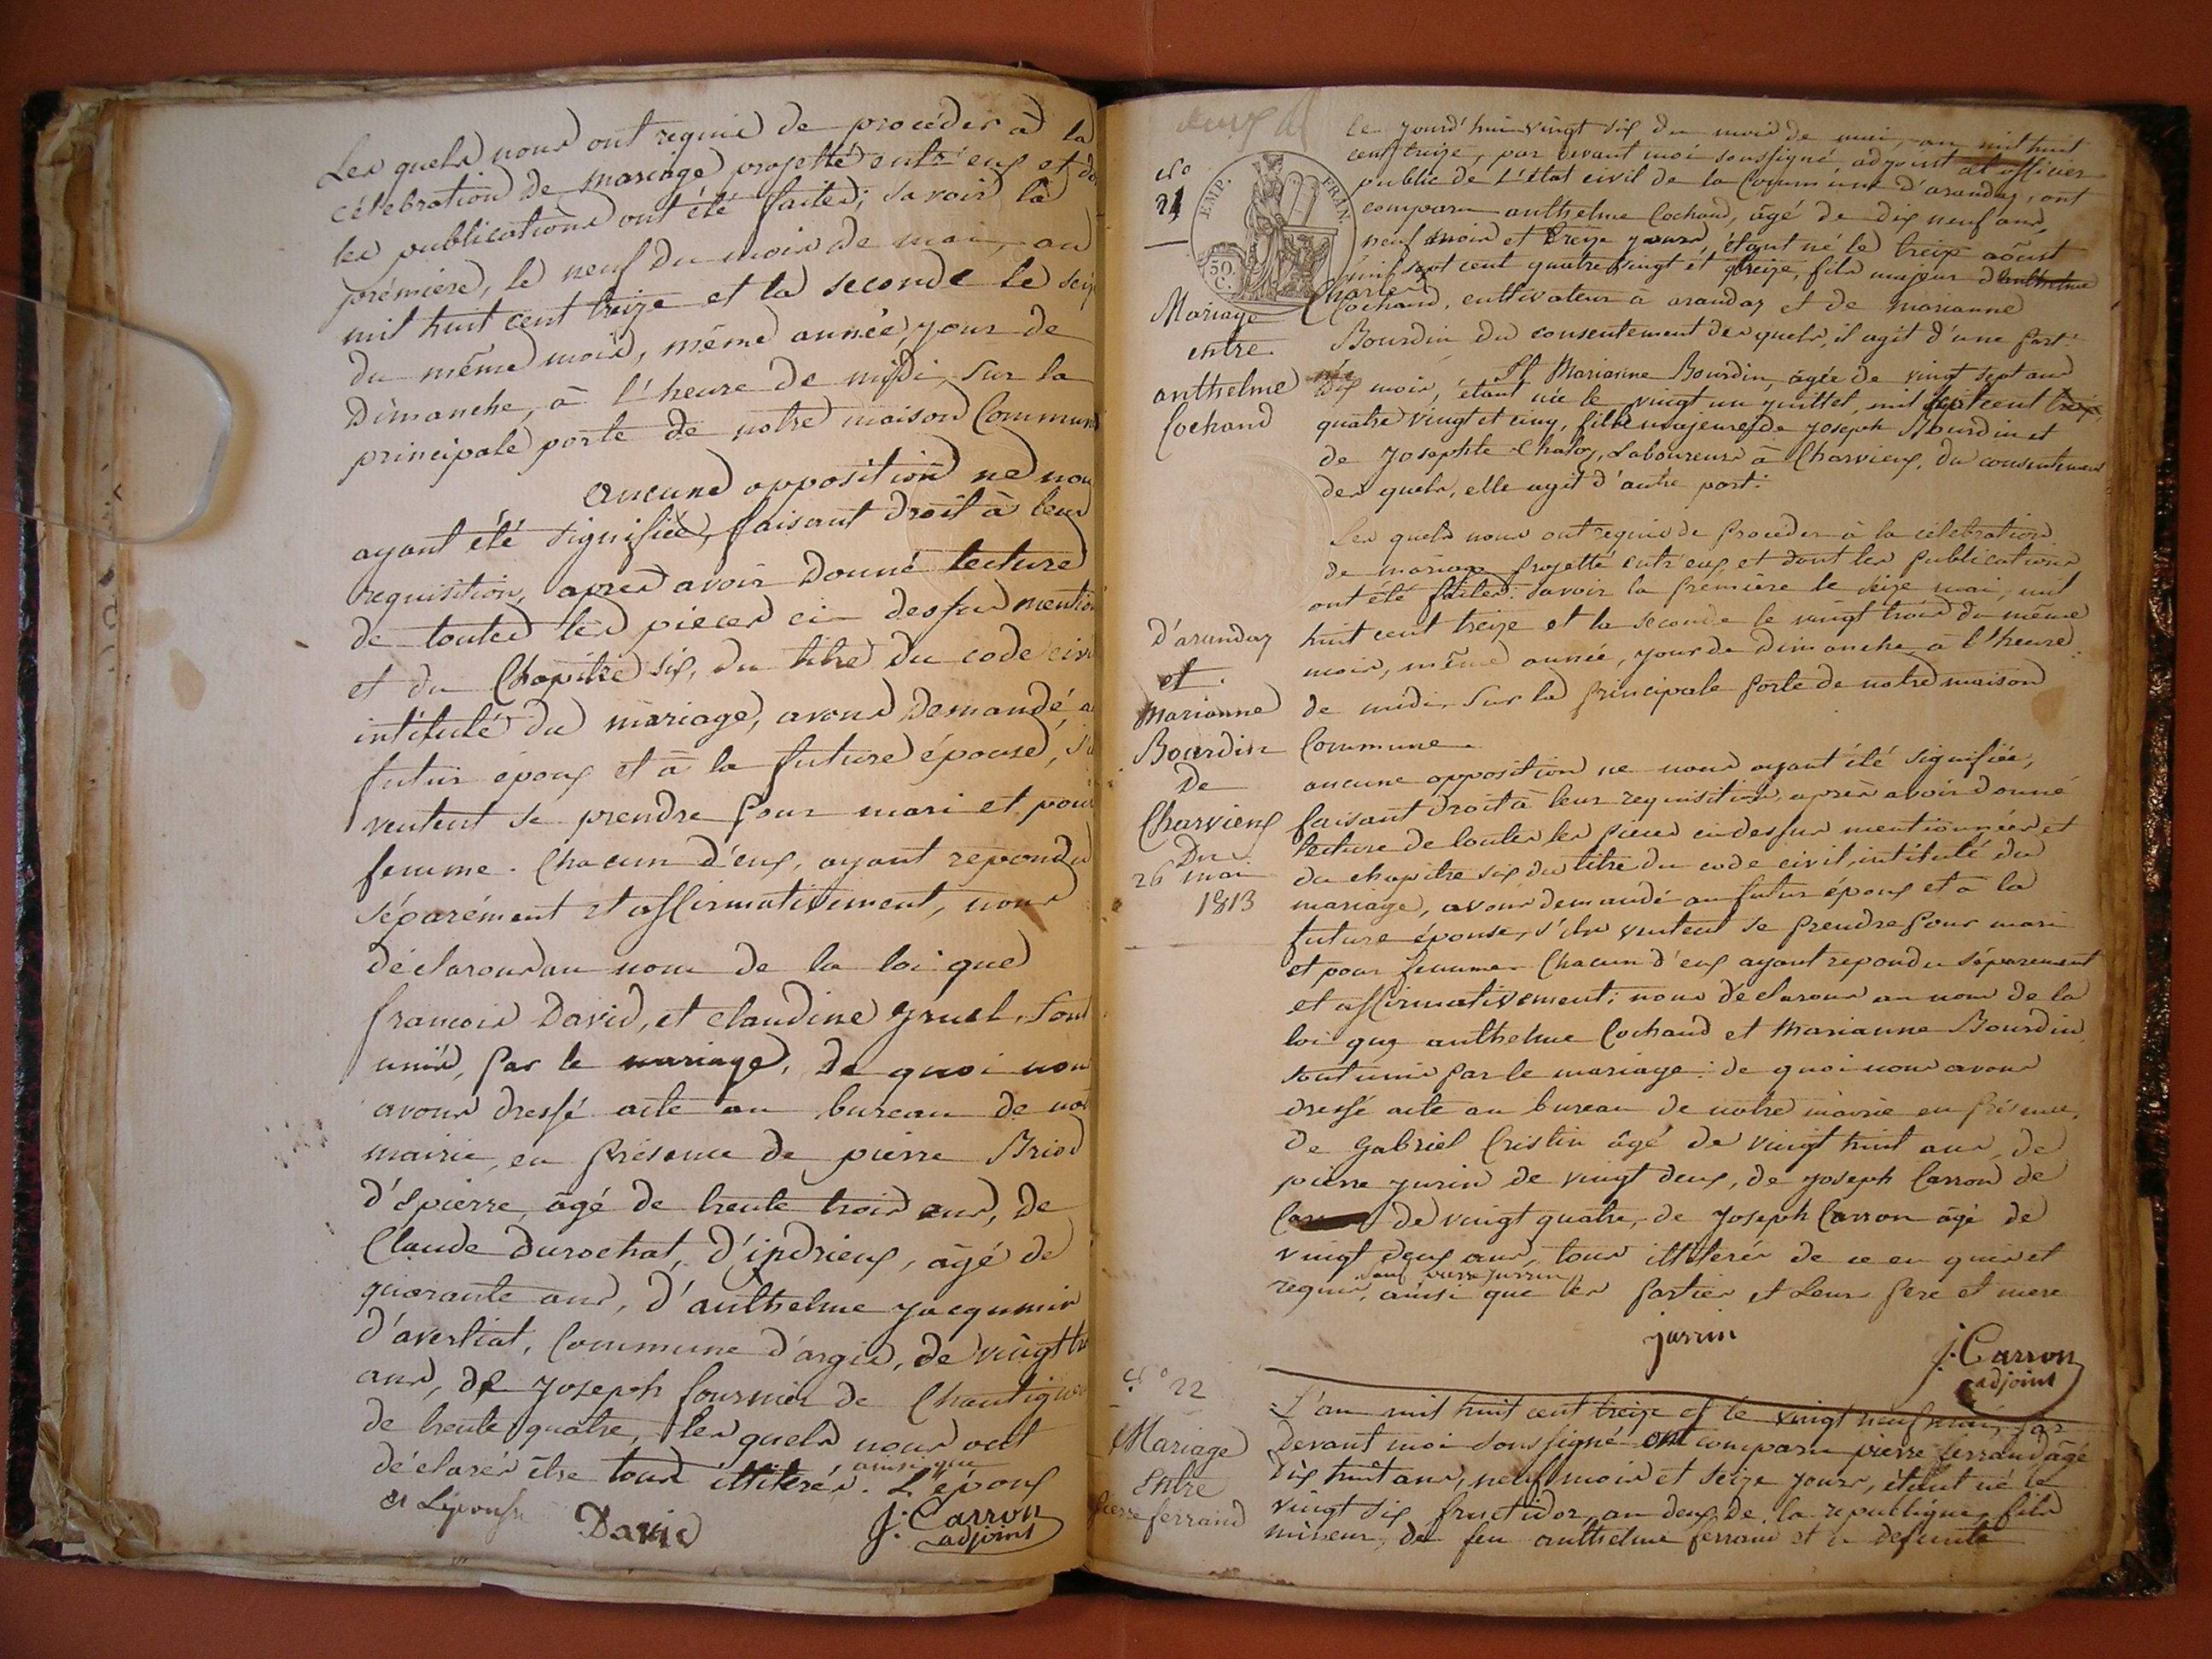 Les quels nous ont requis de procéder à la
célébration de mariage projetté entr'eux et do
les publications ont été faites; savoir la
première, le neuf du mois de mai, an
mil huit cent treize et la seconde le seiz
du même mois, même année, jour de
Dimanche, à l'heure de midi, sur la
principale porte de notre maison Commune
aucune opposition ne nou
ayant été signifiée, faisant droit à leur
requisition, après avoir donné lecture
de toutes les pièces ci-dessus mention
et du Chapitre six, du titre du code civi
intitulé du mariage, avons demandé, a
futur époux et à la future épouse, s'i
veulent se prendre pour mari et pour
femme. Chacun d'eux, ayant repondu
séparément et affirmativement, nous
déclarons au nom de la loi que
françois David, et claudine gruel, sont
unis, par le mariage, de quoi nou
avons dressé acte au bureau de not
mairie, en présence de pierre Briod
d'Epierre, âgé de trente trois ans, de
Claude Durochat, D'indrieux, âgé de
quarante ans, d'anthelme Jacquemin
d'averliat, Commune d'argis, de vingt tr
ans, de Joseph fournier de Chantigne
de trente quatre, les quels nous ont
déclarés être tous illiterés. ainsi que L'époux
et L'epouse
David
J. Carron
adjoint
No
21
Mariage
entre
anthelme
Cochand
D'aranday
et
Marianne
Bourdin
De
Charvieux
Du
26 mai
1813
EMP. FRAN.
50 C.
le jourd'hui vingt six du mois de mai, an mil huit
cent treize, par devant moi soussigné, adjoint et officier
public de L'état civil de la Commune D'aranday, ont
comparu anthelme Cochand, âgé de dix neuf ans,
neuf mois et treize jours, étant né le treize août
mil sept cent quatre vingt et treize, fils majeur d'anthelme
Charles
Cochand, cultivateur à aranday et de marianne
Bourdin du consentement des quels, il agit d'une part.
Et Marianne Bourdin, âgée de vingt sept ans
dix mois, étant née le vingt un juillet, mil sept cent
quatre vingt et cinq, fille majeure de Joseph Bourdin et
de Josephte Chaley, Laboureurs à Charvieux, du consentement
des quels, elle agit d'autre part.
Les quels nous ont requis de proceder à la célébration
de mariage projetté entr'eux et dont les publications
ont été faites: savoir la première le seize mai, mil
huit cent treize et la seconde le vingt trois du même
mois, même année, jour de Dimanche à l'heure
de midi, sur la principale porte de notre maison
Commune.
aucune opposition ne nous ayant été signifiée,
faisant droit à leur requisition, après avoir donné
lecture de toutes les pièces ci-dessus mentionnées et
du chapitre six du titre du code civil, intitulé du
mariage, avons demandé au futur époux et à la
future épouse, s'ils veulent se prendre pour mari
et pour femme. Chacun d'eux ayant repondu séparement
et affirmativement; nous déclarons au nom de la
loi que anthelme Cochand et Marianne Bourdin
sont unis par le mariage: de quoi nous avons
dressé acte au bureau de notre mairie en présence,
de Gabriel Cristin âgé de vingt huit ans, de
pierre jurin de vingt deux, de Joseph Carron de
de vingt quatre, de Joseph Carron âgé de
vingt deux ans, tous illiterés de ce en quis et
requis, sauf pierre jurrin ainsi que les parties et Leurs pere et mere
jurrin
J. Carron
adjoint
No 22
Mariage
Entre
pierre ferrand
L'an mil huit cent treize et le vingt neuf mai, par
Devant moi soussigné ont comparu pierre ferrand âgé
Dix huit ans, neuf mois et seize jours, étant né le
vingt six fructidor, an deux de la republique, fils
mineur, de feu anthelme ferrand et defunte